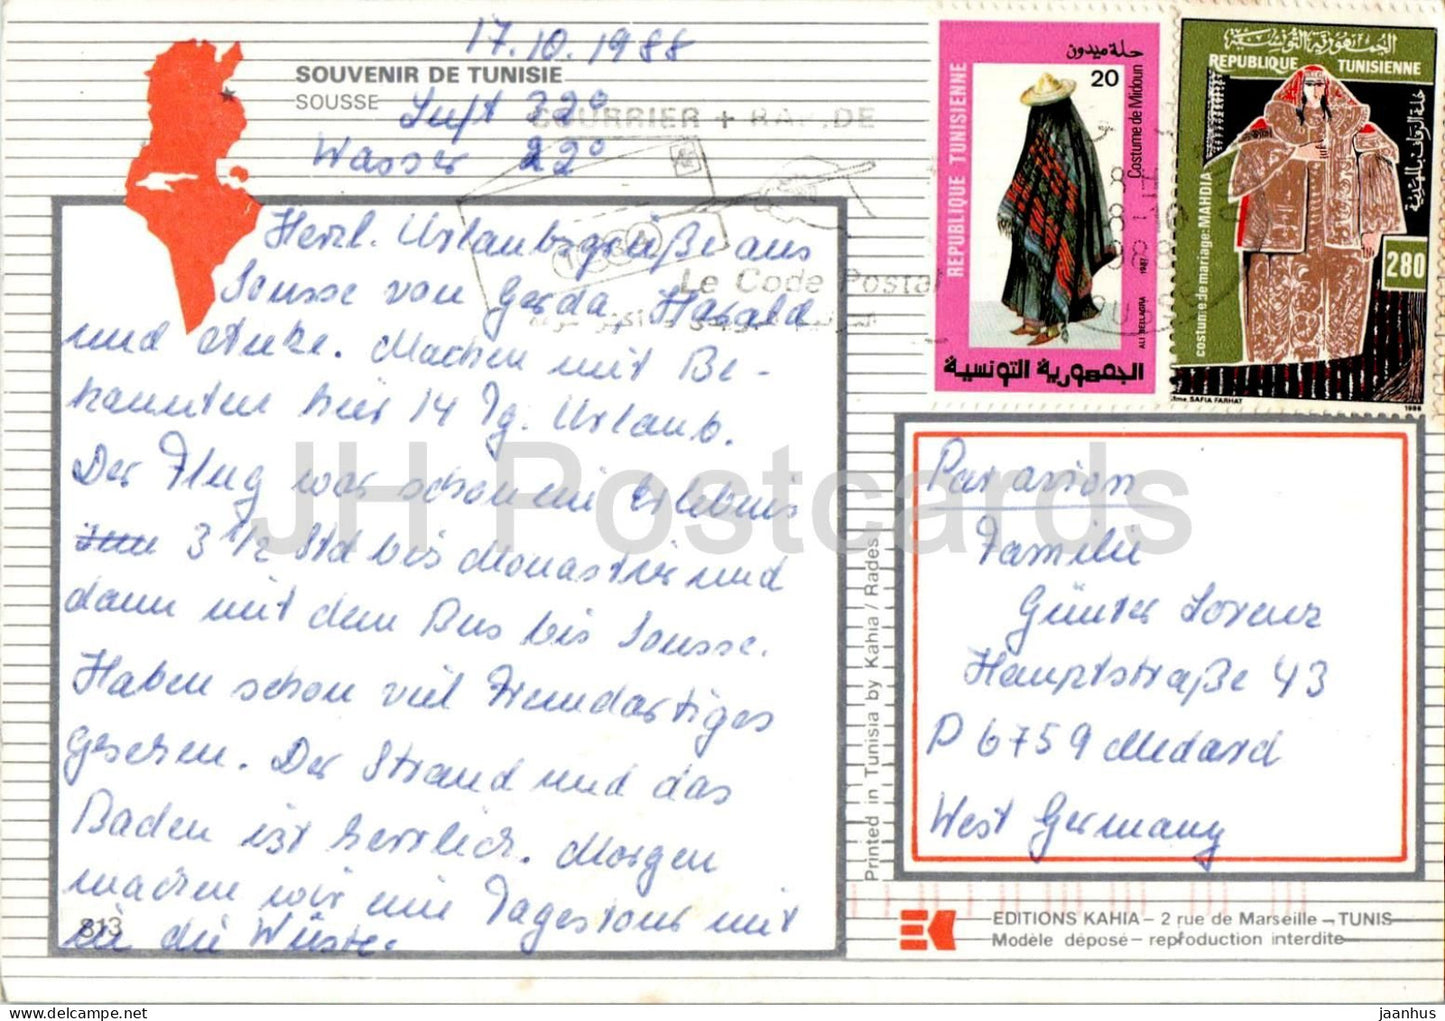 17.10.1988
SOUVENIR DE TUNISIE
SOUSSE
Luft 32°
Wasser 22°
COURRIER + RAPIDE
Le Code Postal
Herzl. Urlaubsgrüße aus
Sousse von Gerda, Harald
und Anke. Machen mit Be-
kannten hier 14 Tg. Urlaub.
Der Flug war schon ein Erlebnis
3 1/2 Std bis Monastir und
dann mit dem Bus bis Sousse.
Haben schon viel Fremdartiges
gesehen. Der Strand und das
Baden ist herrlich. Morgen
machen wir eine Tagestour mit
in die Wüste.
813
حلة ميدون
20
Costume de Midoun
REPUBLIQUE TUNISIENNE
ALI BELLAGHA
1987
الجمهورية التونسية
الجمهورية التونسية
REPUBLIQUE TUNISIENNE
حلة الزفاف بالمهدية
costume de mariage: MAHDIA
280
SAFIA FARHAT
1986
Par avion
Familie
Günter Lorenz
Hauptstraße 43
D 6759 Medard
West Germany
Printed in Tunisia by Kahia / Rades
EDITIONS KAHIA – 2 rue de Marseille – TUNIS
Modèle déposé – reproduction interdite
JH Postcards
jaanhus